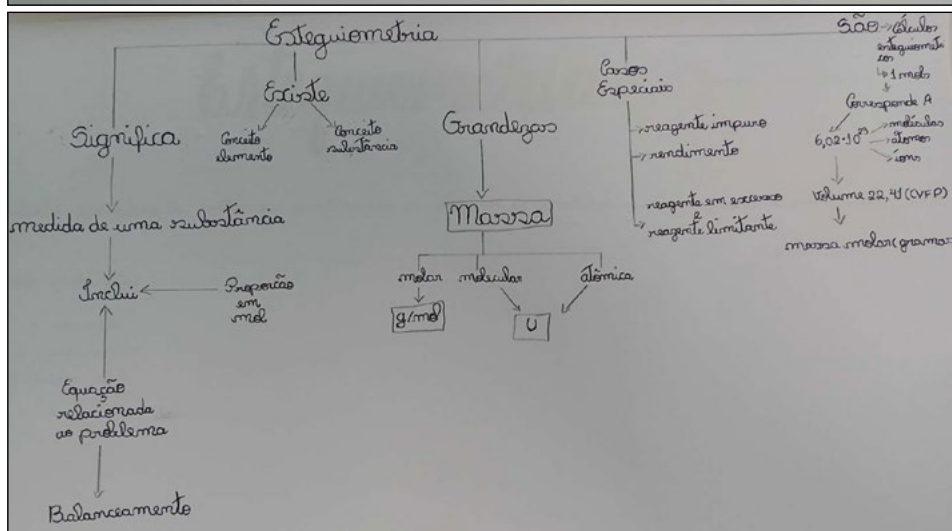 Esteguiometria
Significa
medida de uma substância
Inclui
Proporcão
em
mol
Equação
relacionada
ao problema
Balanceamento
Existe
Conceito
elemento
Conceito
substância
Grandezas
Massa
molar molecular atômica
g/mol
U
Casos
Especiais
reagente impuro
rendimento
reagente em excesso
e
reagente limitante
São cálculos
estequiomet
cos
1 mols
Corresponde A
6,02·10²³
moléculas
átomos
íons
Volume 22,4l (CVFP)
massa molar (grama